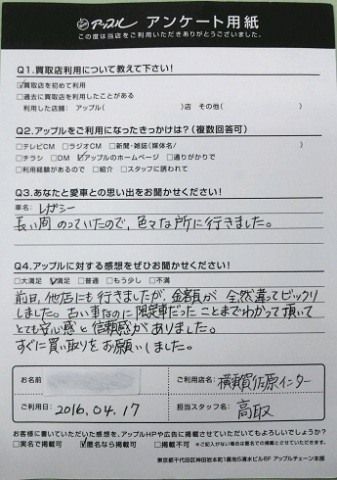 アップル アンケート用紙
この度は当店をご利用いただきありがとうございました。
Q1.買取店利用について教えて下さい!
☑買取店を初めて利用
□過去に買取店を利用したことがある
利用した店舗: アップル( )店 その他( )
Q2.アップルをご利用になったきっかけは?(複数回答可)
□テレビCM □ラジオCM □新聞・雑誌(媒体名/ )
□チラシ □DM ☑アップルのホームページ □通りがかりで
□利用経験があるので □紹介 □スタッフに誘われて
Q3.あなたと愛車との思い出をお聞かせください!
車名: レガシー
長い間のっていたので、色々な所に行きました。
Q4.アップルに対する感想をぜひお聞かせください!
□大満足 ☑満足 □普通 □もう少し □不満
前日、他店にも行きましたが、金額が全然違ってビックリ
しました。古い車なのに限定車だったことまでわかって頂いて
とても安心感と信頼感がありました。
すぐに買い取りをお願いしました。
お名前
ご利用店名: 横須賀佐原インター
ご利用日: 2016.04.17
担当スタッフ名: 高取
お客様に書いていただいた感想を、アップルHPや広告に掲載させていただいてもよろしいでしょうか?
□実名で掲載可 ☑匿名なら掲載可 □掲載不可 ※ご記入がない場合は匿名での掲載とさせていただきます。
東京都千代田区神田岩本町1番地5清水ビル6F アップルチェーン本部